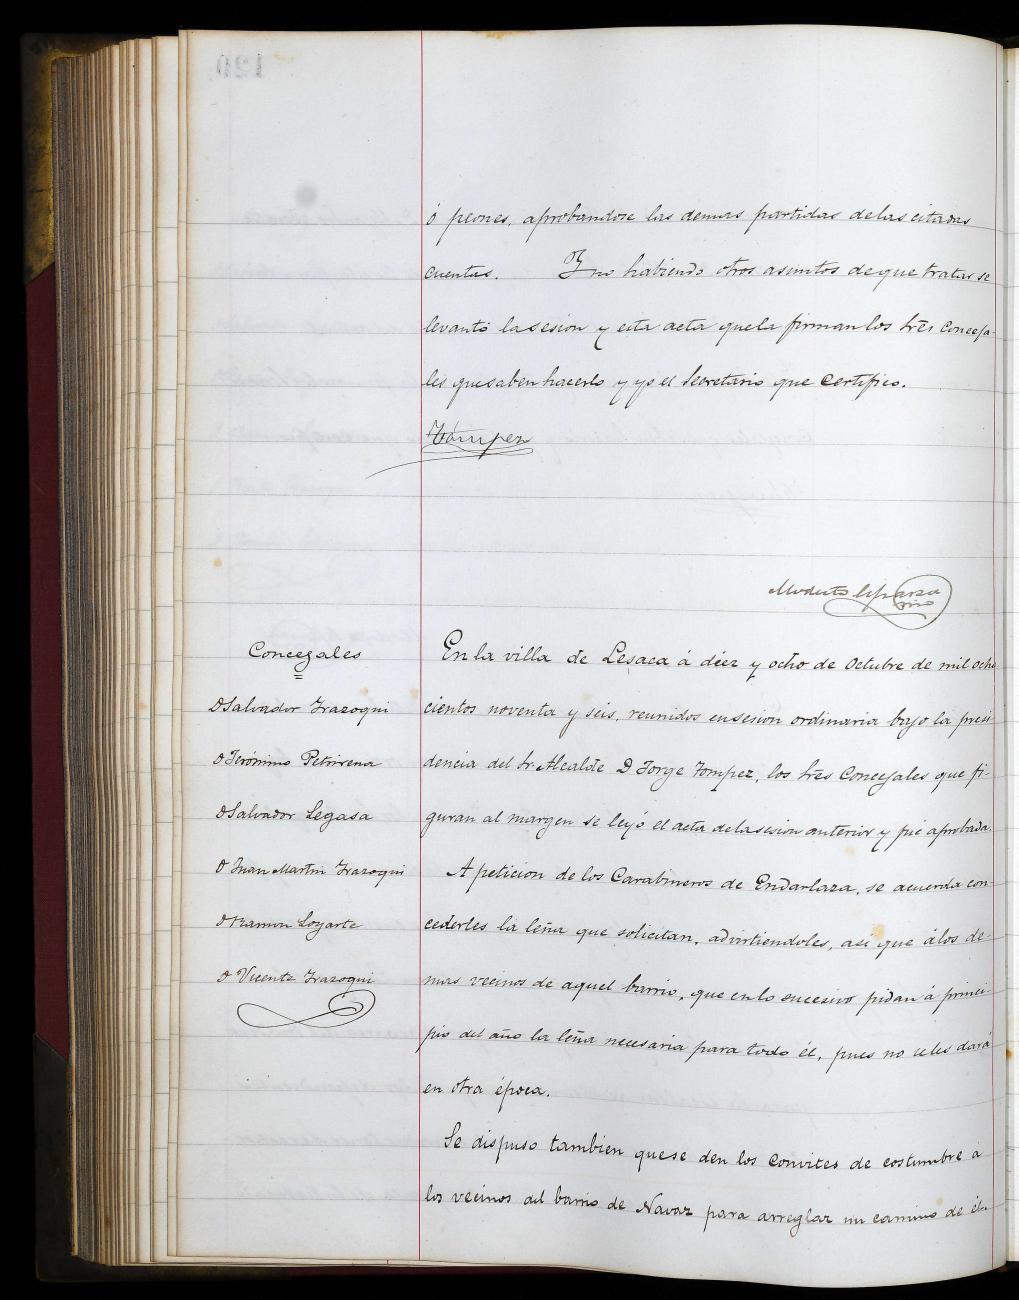 ó peones, aprobandose las demas partidas de las citadas
cuentas. Y no habiendo otros asuntos de que tratar se
levantó la sesion y esta acta que la firman los Sres Conceja-
les que saben hacerlo y yo el Secretario que Certifico.
Tompez
Modesto Esparza
Srio
Concejales
D Salvador Irazoqui
D Jerónimo Petrirena
D Salvador Legasa
D Juan Martin Irazoqui
D Ramon Loyarte
D Vicente Irazoqui
En la villa de Lesaca á diez y ocho de Octubre de mil ocho
cientos noventa y seis, reunidos en sesion ordinaria bajo la presi
dencia del Sr. Alcalde D Jorge Tompez, los Sres Concejales que fi-
guran al margen se leyó el acta de la sesion anterior y fué aprobada.
A peticion de los Carabineros de Endarlaza, se acuerda con-
cederles la leña que solicitan, advirtiendoles, asi que á los de-
mas vecinos de aquel barrio, que en lo sucesivo pidan á princi-
pio del año la leña necesaria para todo él, pues no se les dará
en otra época.
Se dispuso tambien que se den los convites de costumbre á
los vecinos del barrio de Navaz para arreglar un camino de él.